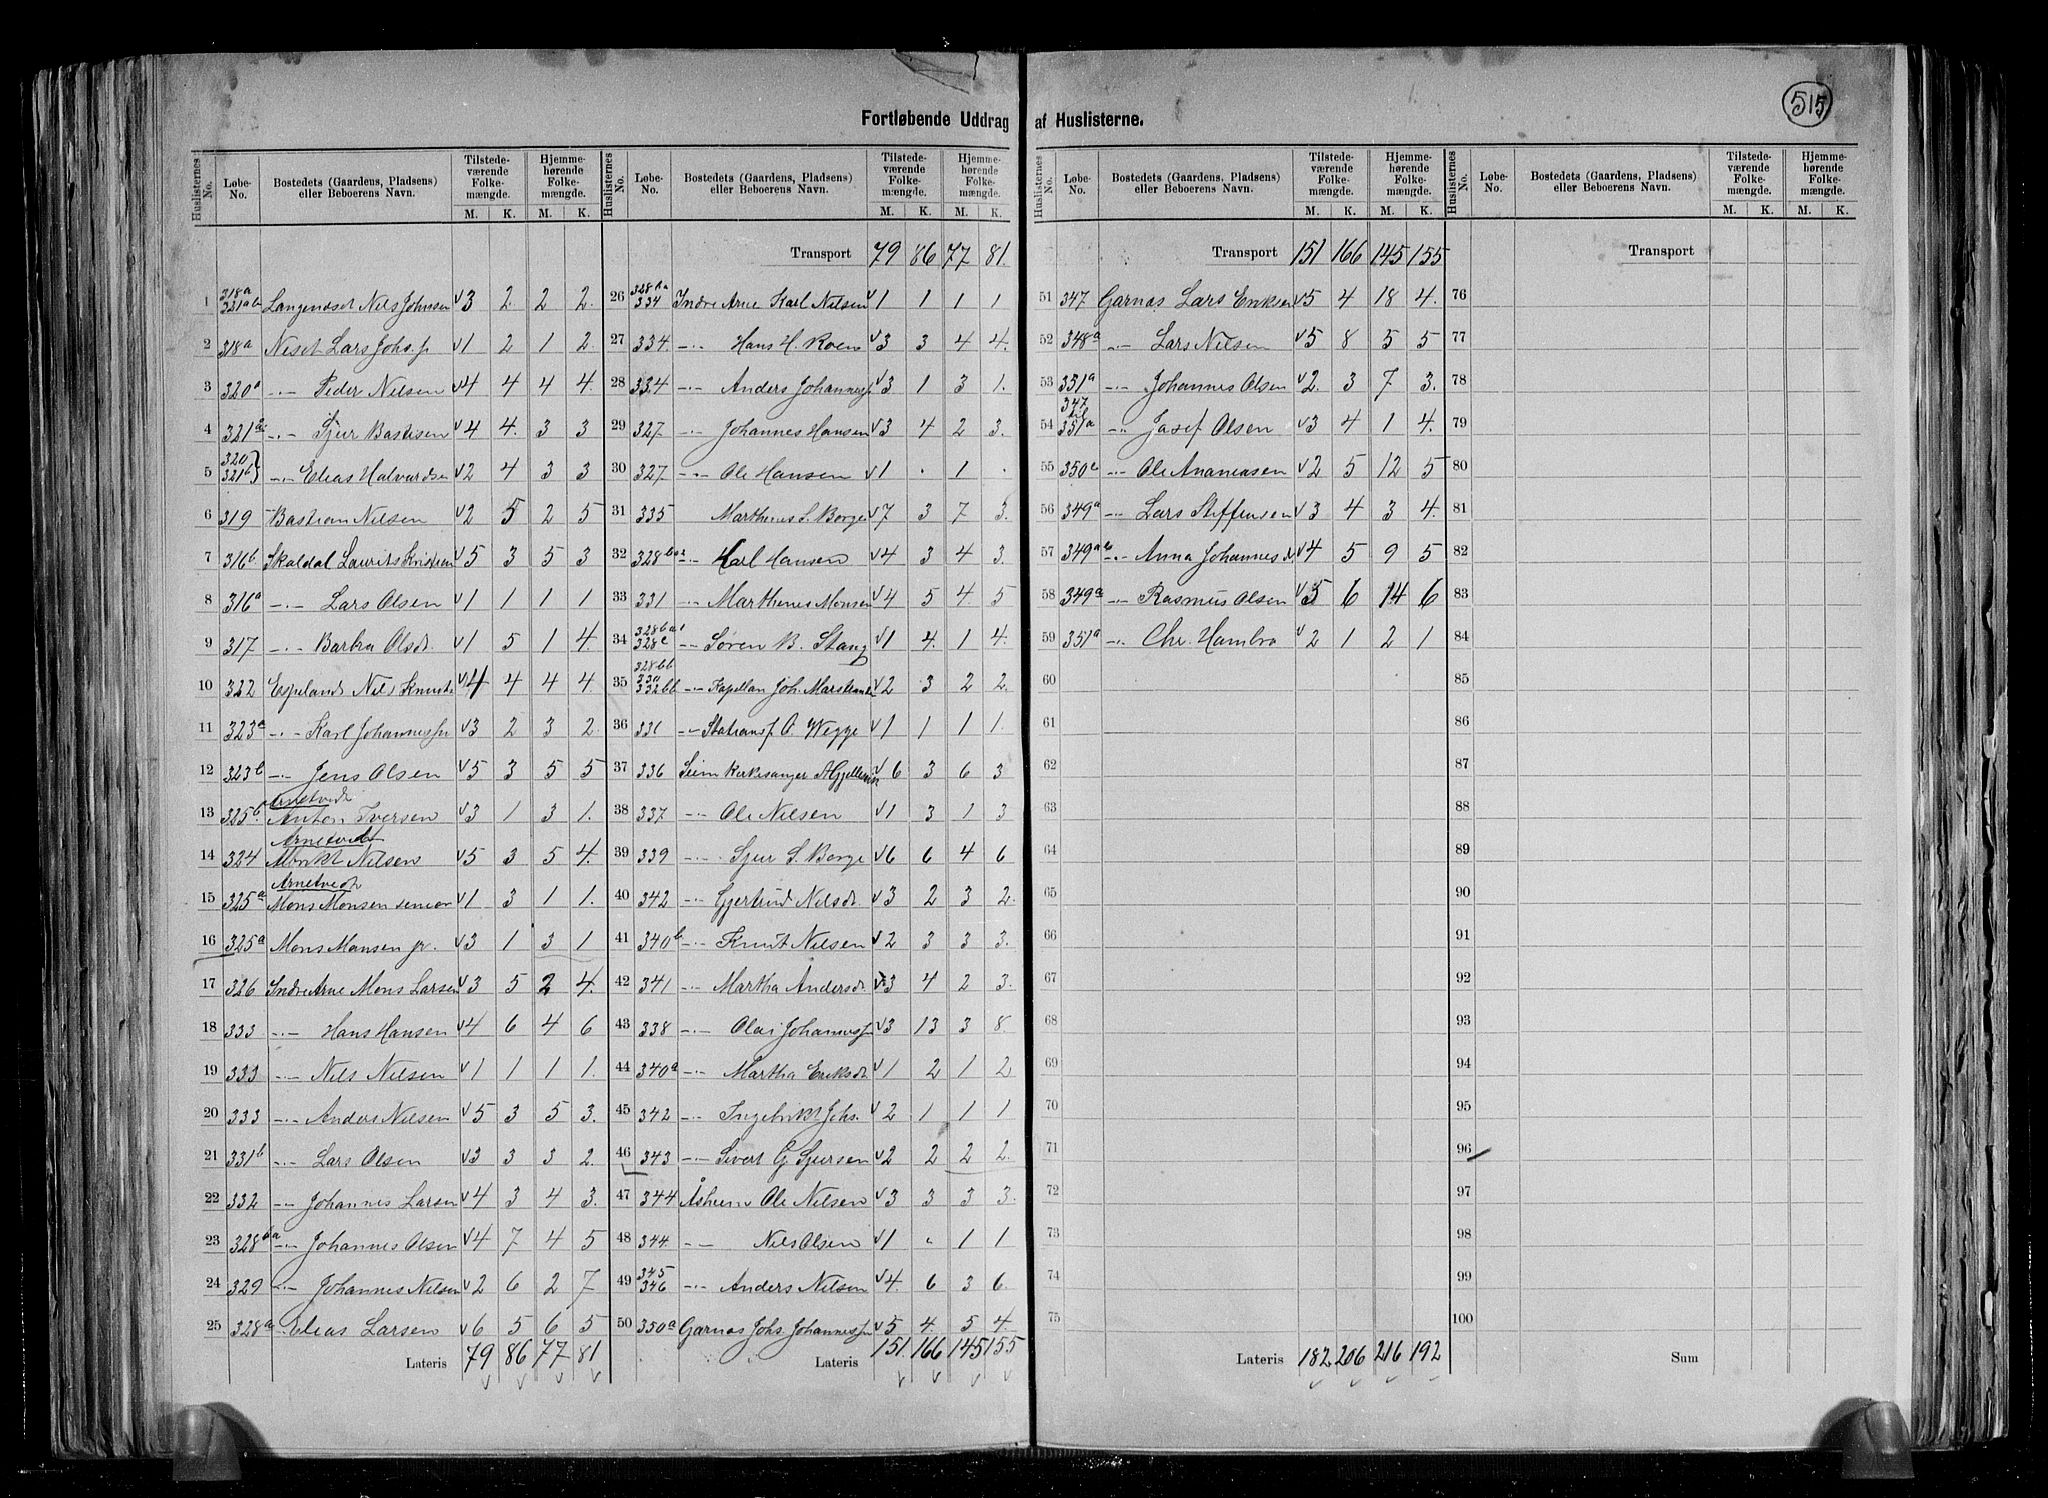 515
Fortløbende Uddrag af Huslisterne.
Huslisternes No. Løbe-No. Bostedets (Gaardens, Pladsens) eller Beboerens Navn. Tilstedeværende Folkemængde. M. K. Hjemmehørende Folkemængde. M. K.
1 318a 321ab Langendset Nils Johnsen 3 2 2 2
2 318a Neset Lars Johs. 1 2 1 2
3 320a -"- Peder Nilsen 4 4 4 4
4 321 -"- Sjur Bastisen 4 4 3 3
5 320 321b -"- Elias Halvardsen 2 4 3 3
6 319 Bastian Nilsen 2 5 2 5
7 316b Skaldal Laurits 5 3 5 3
8 316a -"- Lars Olsen 1 1 1 1
9 317 -"- Barbra Olsdr. 1 5 1 4
10 322 Espeland Nils 4 4 4 4
11 323a -"- Karl 3 2 3 2
12 323b -"- Jens Olsen 5 3 5 5
13 325b Arnetvedt Anton Iversen 3 1 3 1
14 324 Arnetvedt Nilsen 5 3 5 4
15 325a Arnetvedt Mons Monsen senior 1 3 1 1
16 325a Mons Monsen jr. 3 1 3 1
17 326 Indre Arne Mons Larsen 3 5 2 4
18 333 -"- Hans Hansen 4 6 4 6
19 333 -"- Nils Nilsen 1 1 1 1
20 333 -"- Anders Nilsen 5 3 5 3
21 331b -"- Lars Olsen 3 3 3 2
22 332 -"- Johannes Larsen 4 3 4 3
23 328ba -"- Johannes Olsen 4 7 4 5
24 329 -"- Johannes Nilsen 2 6 2 7
25 328a -"- Elias Larsen 6 5 6 5
Lateris 79 86 77 81
Huslisternes No. Løbe-No. Bostedets (Gaardens, Pladsens) eller Beboerens Navn. Tilstedeværende Folkemængde. M. K. Hjemmehørende Folkemængde. M. K.
Transport 79 86 77 81
26 334 Indre Arne Karl Nilsen 1 1 1 1
27 334 -"- Hans H. Roen 3 3 4 4
28 334 -"- Anders 3 1 3 1
29 327 -"- Johannes Hansen 3 4 2 3
30 327 -"- Ole Hansen 1 . 1 .
31 335 Marthenes S. Borge 7 3 7 3
32 328 -"- Karl Hansen 4 3 4 3
33 331 -"- Marthenes Monsen 4 5 4 5
34 328c -"- Søren B. Stang 1 4 1 4
35 328bb 330 332bb -"- Kapellan Joh. 2 3 2 2
36 331 -"- Wegge 1 1 1 1
37 336 Seim Kirkesanger 6 3 6 3
38 337 -"- Ole Nilsen 1 3 1 3
39 339 -"- Sjur S. Borge 6 6 4 6
40 342 -"- Gjertrud Nilsdr. 3 2 3 2
41 340b -"- Knut Nilsen 2 3 3 3
42 341 -"- Martha Andersdr. 3 4 2 3
43 338 -"- Olai 3 13 3 8
44 340a -"- Martha Eriksdr. 1 2 1 2
45 342 -"- Ingebrikt Johs. 2 1 1 1
46 343 -"- Sivert G. Sjursen 2 2 2 2
47 344 Åsheim Ole Nilsen 3 3 3 3
48 344 -"- Nils Olsen 1 " 1 1
49 345 346 -"- Anders Nilsen 4 6 3 6
50 350a Garnas Johs 5 4 5 4
Lateris 151 166 145 155
Huslisternes No. Løbe-No. Bostedets (Gaardens, Pladsens) eller Beboerens Navn. Tilstedeværende Folkemængde. M. K. Hjemmehørende Folkemængde. M. K.
Transport 151 166 145 155
51 347 Garnas Lars Eriksen 5 4 18 4
52 348a -"- Lars Nilsen 5 8 5 5
53 351a -"- Johannes Olsen 2 3 7 3
54 347 til 351a -"- Josef Olsen 3 4 1 4
55 350c -"- Ole Ananiasen 2 5 12 5
56 349a -"- Lars Steffensen 3 4 3 4
57 349ab -"- Anna Johannesdr. 4 5 9 5
58 349a -"- Rasmus Olsen 5 6 14 6
59 351a -"- Chr. Hambro 2 1 2 1
60
61
62
63
64
65
66
67
68
69
70
71
72
73
74
75
Lateris 182 206 216 192
Huslisternes No. Løbe-No. Bostedets (Gaardens, Pladsens) eller Beboerens Navn. Tilstedeværende Folkemængde. M. K. Hjemmehørende Folkemængde. M. K.
Transport
76
77
78
79
80
81
82
83
84
85
86
87
88
89
90
91
92
93
94
95
96
97
98
99
100
Sum